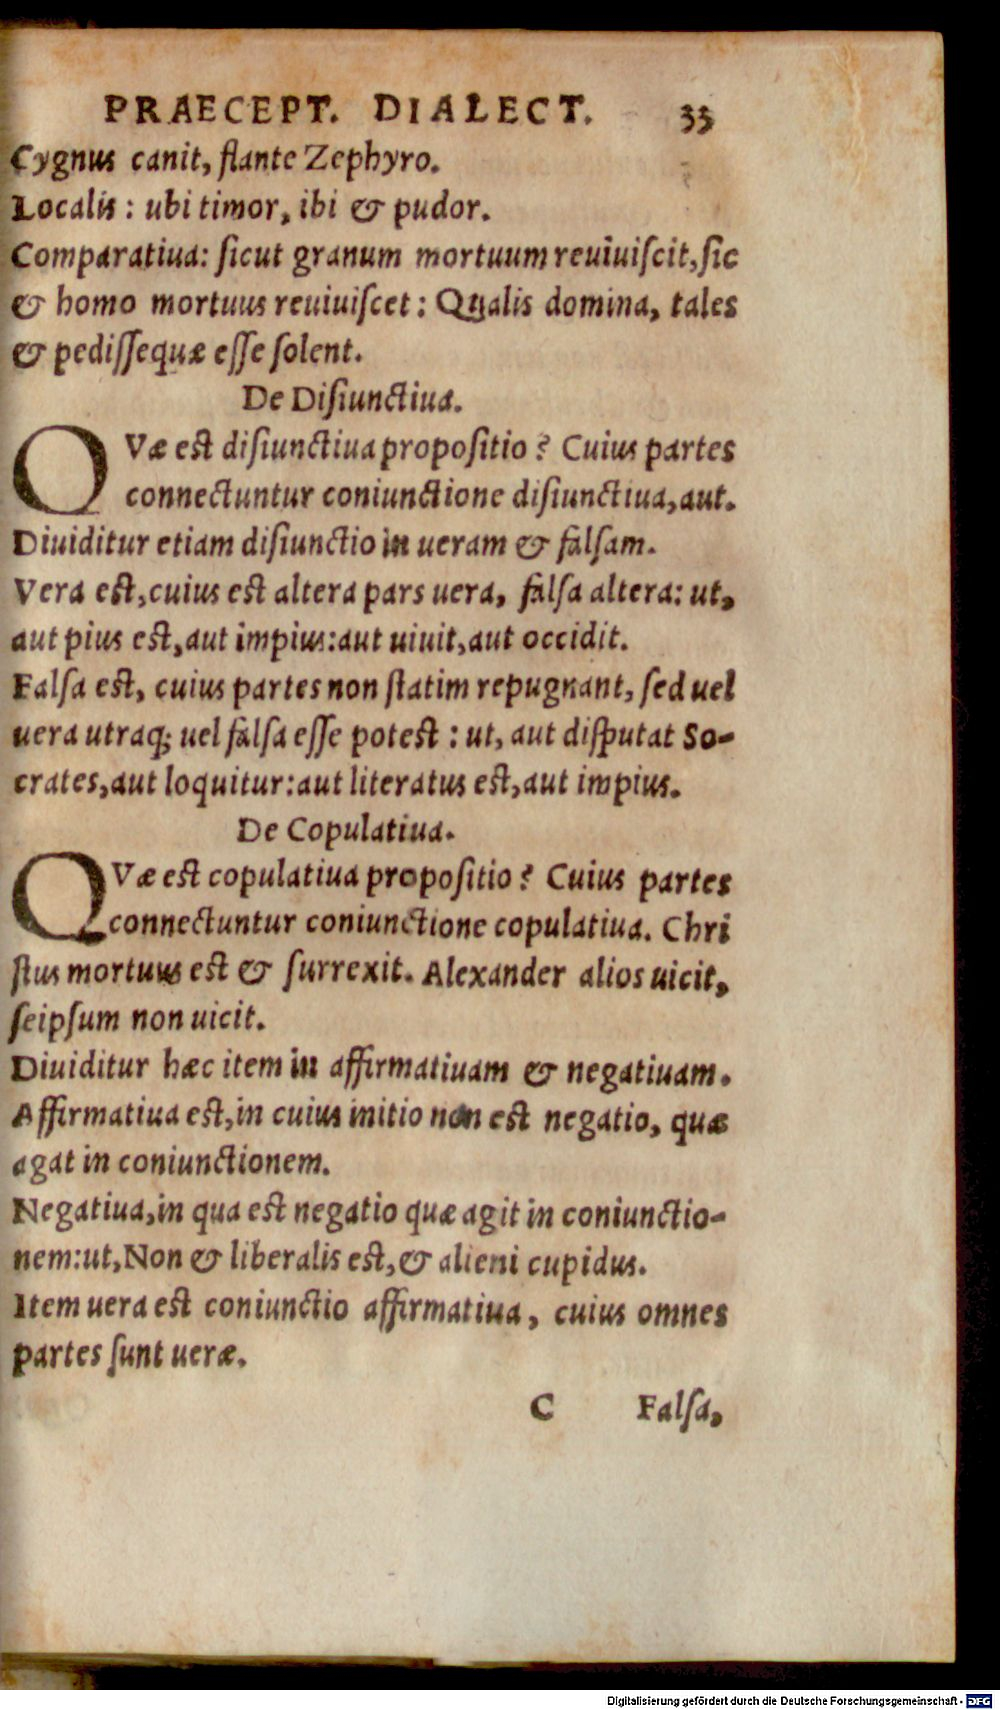 PRAECEPT. DIALECT. 33
Cygnus canit, flante Zephyro.
Localis: ubi timor, ibi & pudor.
Comparatiua: sicut granum mortuum reuiuiscit, sic
& homo mortuus reuiuiscet: Qualis domina, tales
& pedissequæ esse solent.
De Disiunctiua.
QVæ est disiunctiua propositio? Cuius partes
connectuntur coniunctione disiunctiua, aut.
Diuiditur etiam disiunctio in ueram & falsam.
Vera est, cuius est altera pars uera, falsa altera: ut,
aut pius est, aut impius: aut uiuit, aut occidit.
Falsa est, cuius partes non statim repugnant, sed uel
uera utraq; uel falsa esse potest: ut, aut disputat So-
crates, aut loquitur: aut literatus est, aut impius.
De Copulatiua.
QVæ est copulatiua propositio? Cuius partes
connectuntur coniunctione copulatiua. Chri
stus mortuus est & surrexit. Alexander alios uicit,
seipsum non uicit.
Diuiditur hæc item in affirmatiuam & negatiuam.
Affirmatiua est, in cuius initio non est negatio, quæ
agat in coniunctionem.
Negatiua, in qua est negatio quæ agit in coniunctio-
nem: ut, Non & liberalis est, & alieni cupidus.
Item uera est coniunctio affirmatiua, cuius omnes
partes sunt ueræ.
C Falsa,
Digitalisierung gefördert durch die Deutsche Forschungsgemeinschaft - DFG